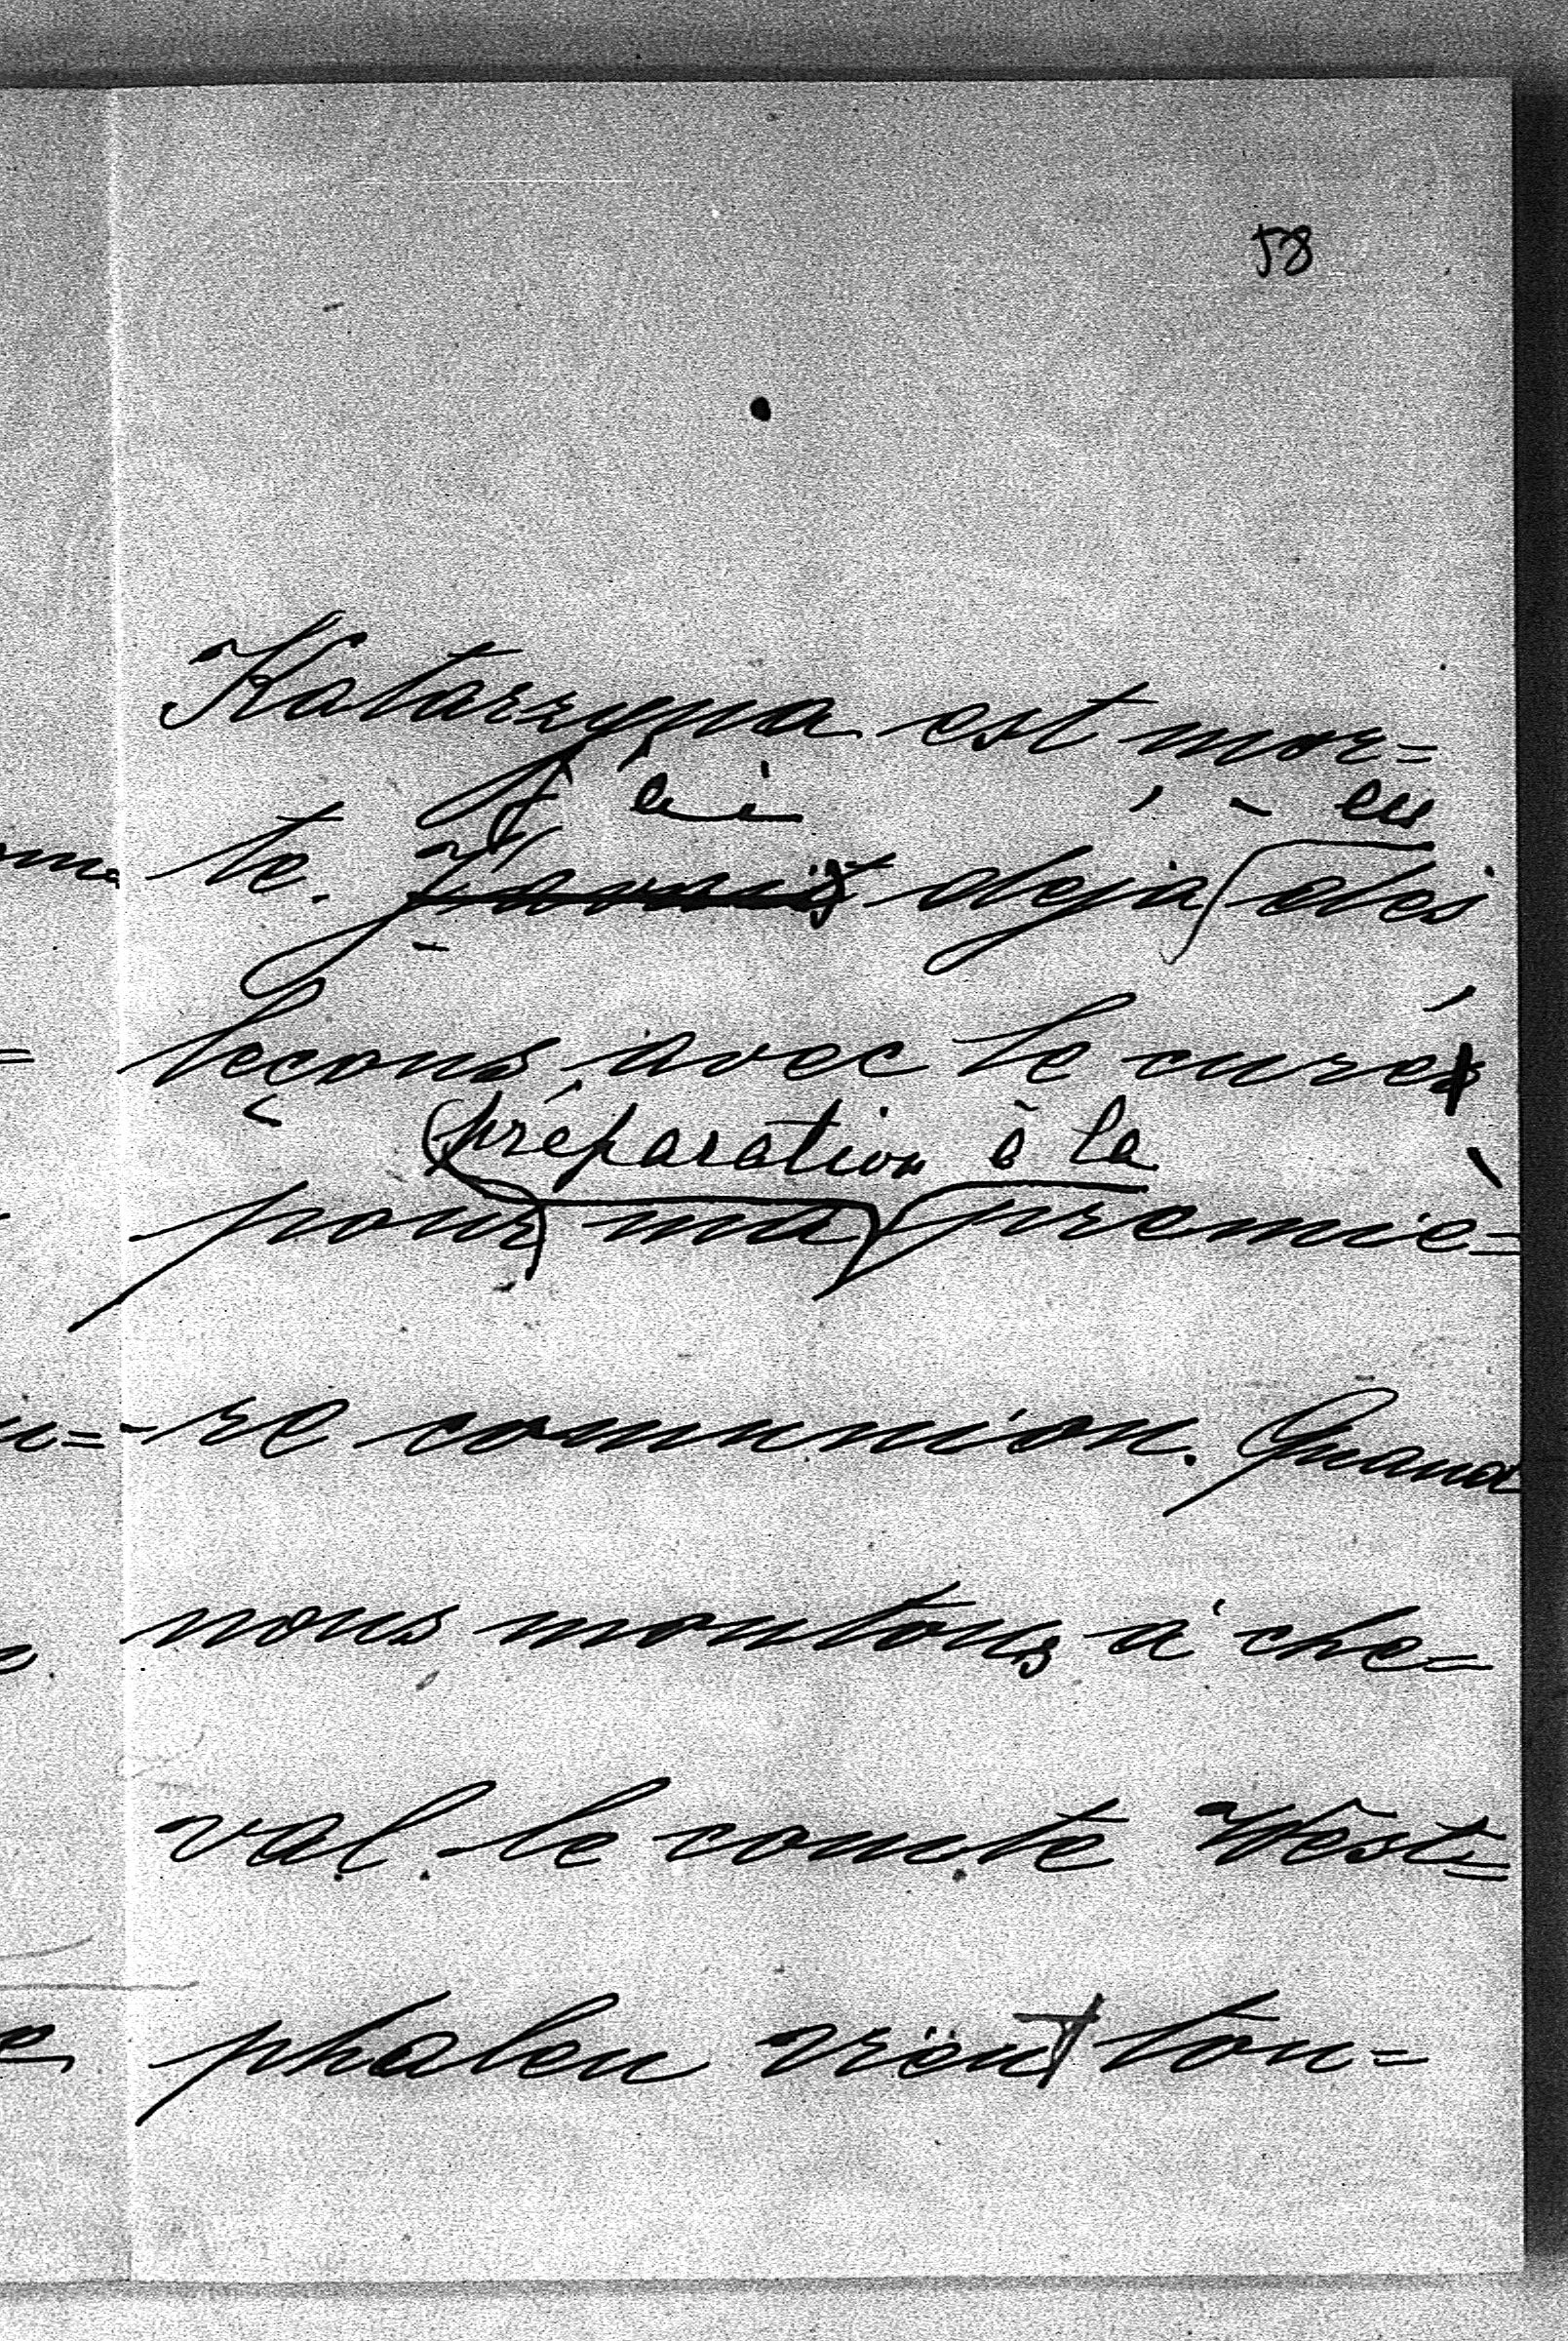 58
Katarzyna est mor=
ai eu
te. J'avais déjà des
leçons avec le curé
préparation à la
pour ma premiè=
re communion. Quand
nous montons à che=
val le comte West=
phalen vient tou=